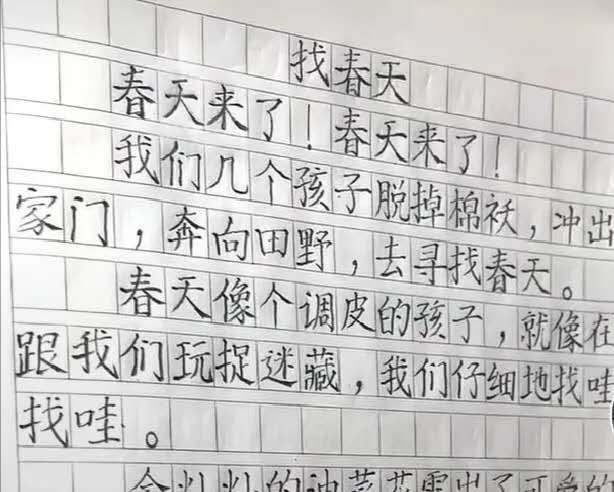 找春天
春天来了！春天来了！
我们几个孩子脱掉棉袄，冲出
家门，奔向田野，去寻找春天。
春天像个调皮的孩子，就像在
跟我们玩捉迷藏，我们仔细地找哇
找哇。